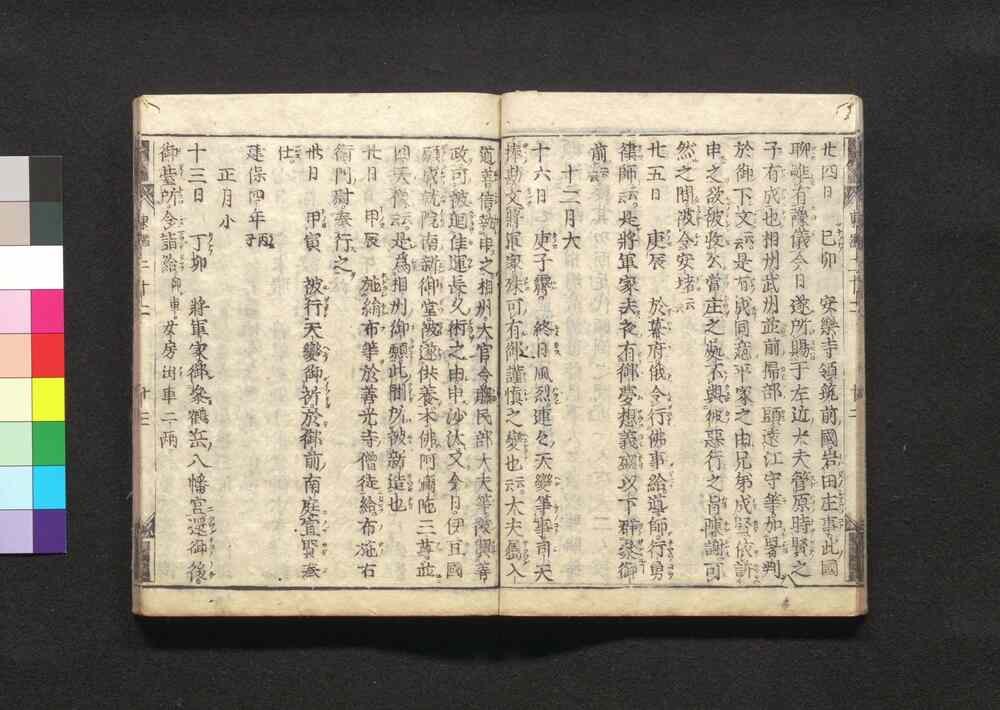 廿四日 己卯 安樂寺領筑前國岩田庄事此國
聊雖有豫儀今日遂所賜于左近大夫菅原時賢之
子有成也相州武州並前局部頭遠江守等加署判
於御下文云云是有成同意平家之由兄弟成賢依訴
申之欲被收公當庄之處不與彼惡行之旨陳謝可
然之間被令安堵云云
廿五日 庚辰 於幕府俄令行佛事給導師行勇
律師云云是將軍家去夜有御夢想義盛以下群參御
前云云
十二月大
十六日 庚子霽 終日風烈連々天變等事司天
捧勘文將軍家殊可有御謹愼之變也云云大夫屬入
道善信執申之相州大官令民部大夫等徴興善
政可被廻佳運長久術之由申沙汰又今日伊豆國
願成就院南新御堂被遂供養本佛阿彌陀三尊並
四天像云云是爲相州御願此間所被新造也
廿日 甲辰 施絹布等於善光寺僧徒給布施右
衛門尉奉行之
卅日 甲寅 被行天變御祈於御前南庭宣賢奉
仕云云
建保四年丙子
正月小
十三日 丁卯 將軍家御參鶴岳八幡宮還御後
御臺所令詣給御車女房出車二兩
東鑑二十二 十三